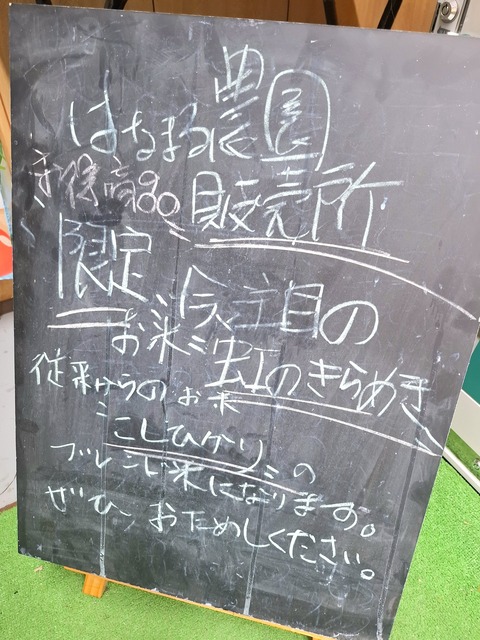 はなまる農園
販売所
限定、今、注目の
お米〝虹のきらめき
従来からのお米
〝こしひかり〟の
ブレンド米になります。
ぜひ、おためしください。